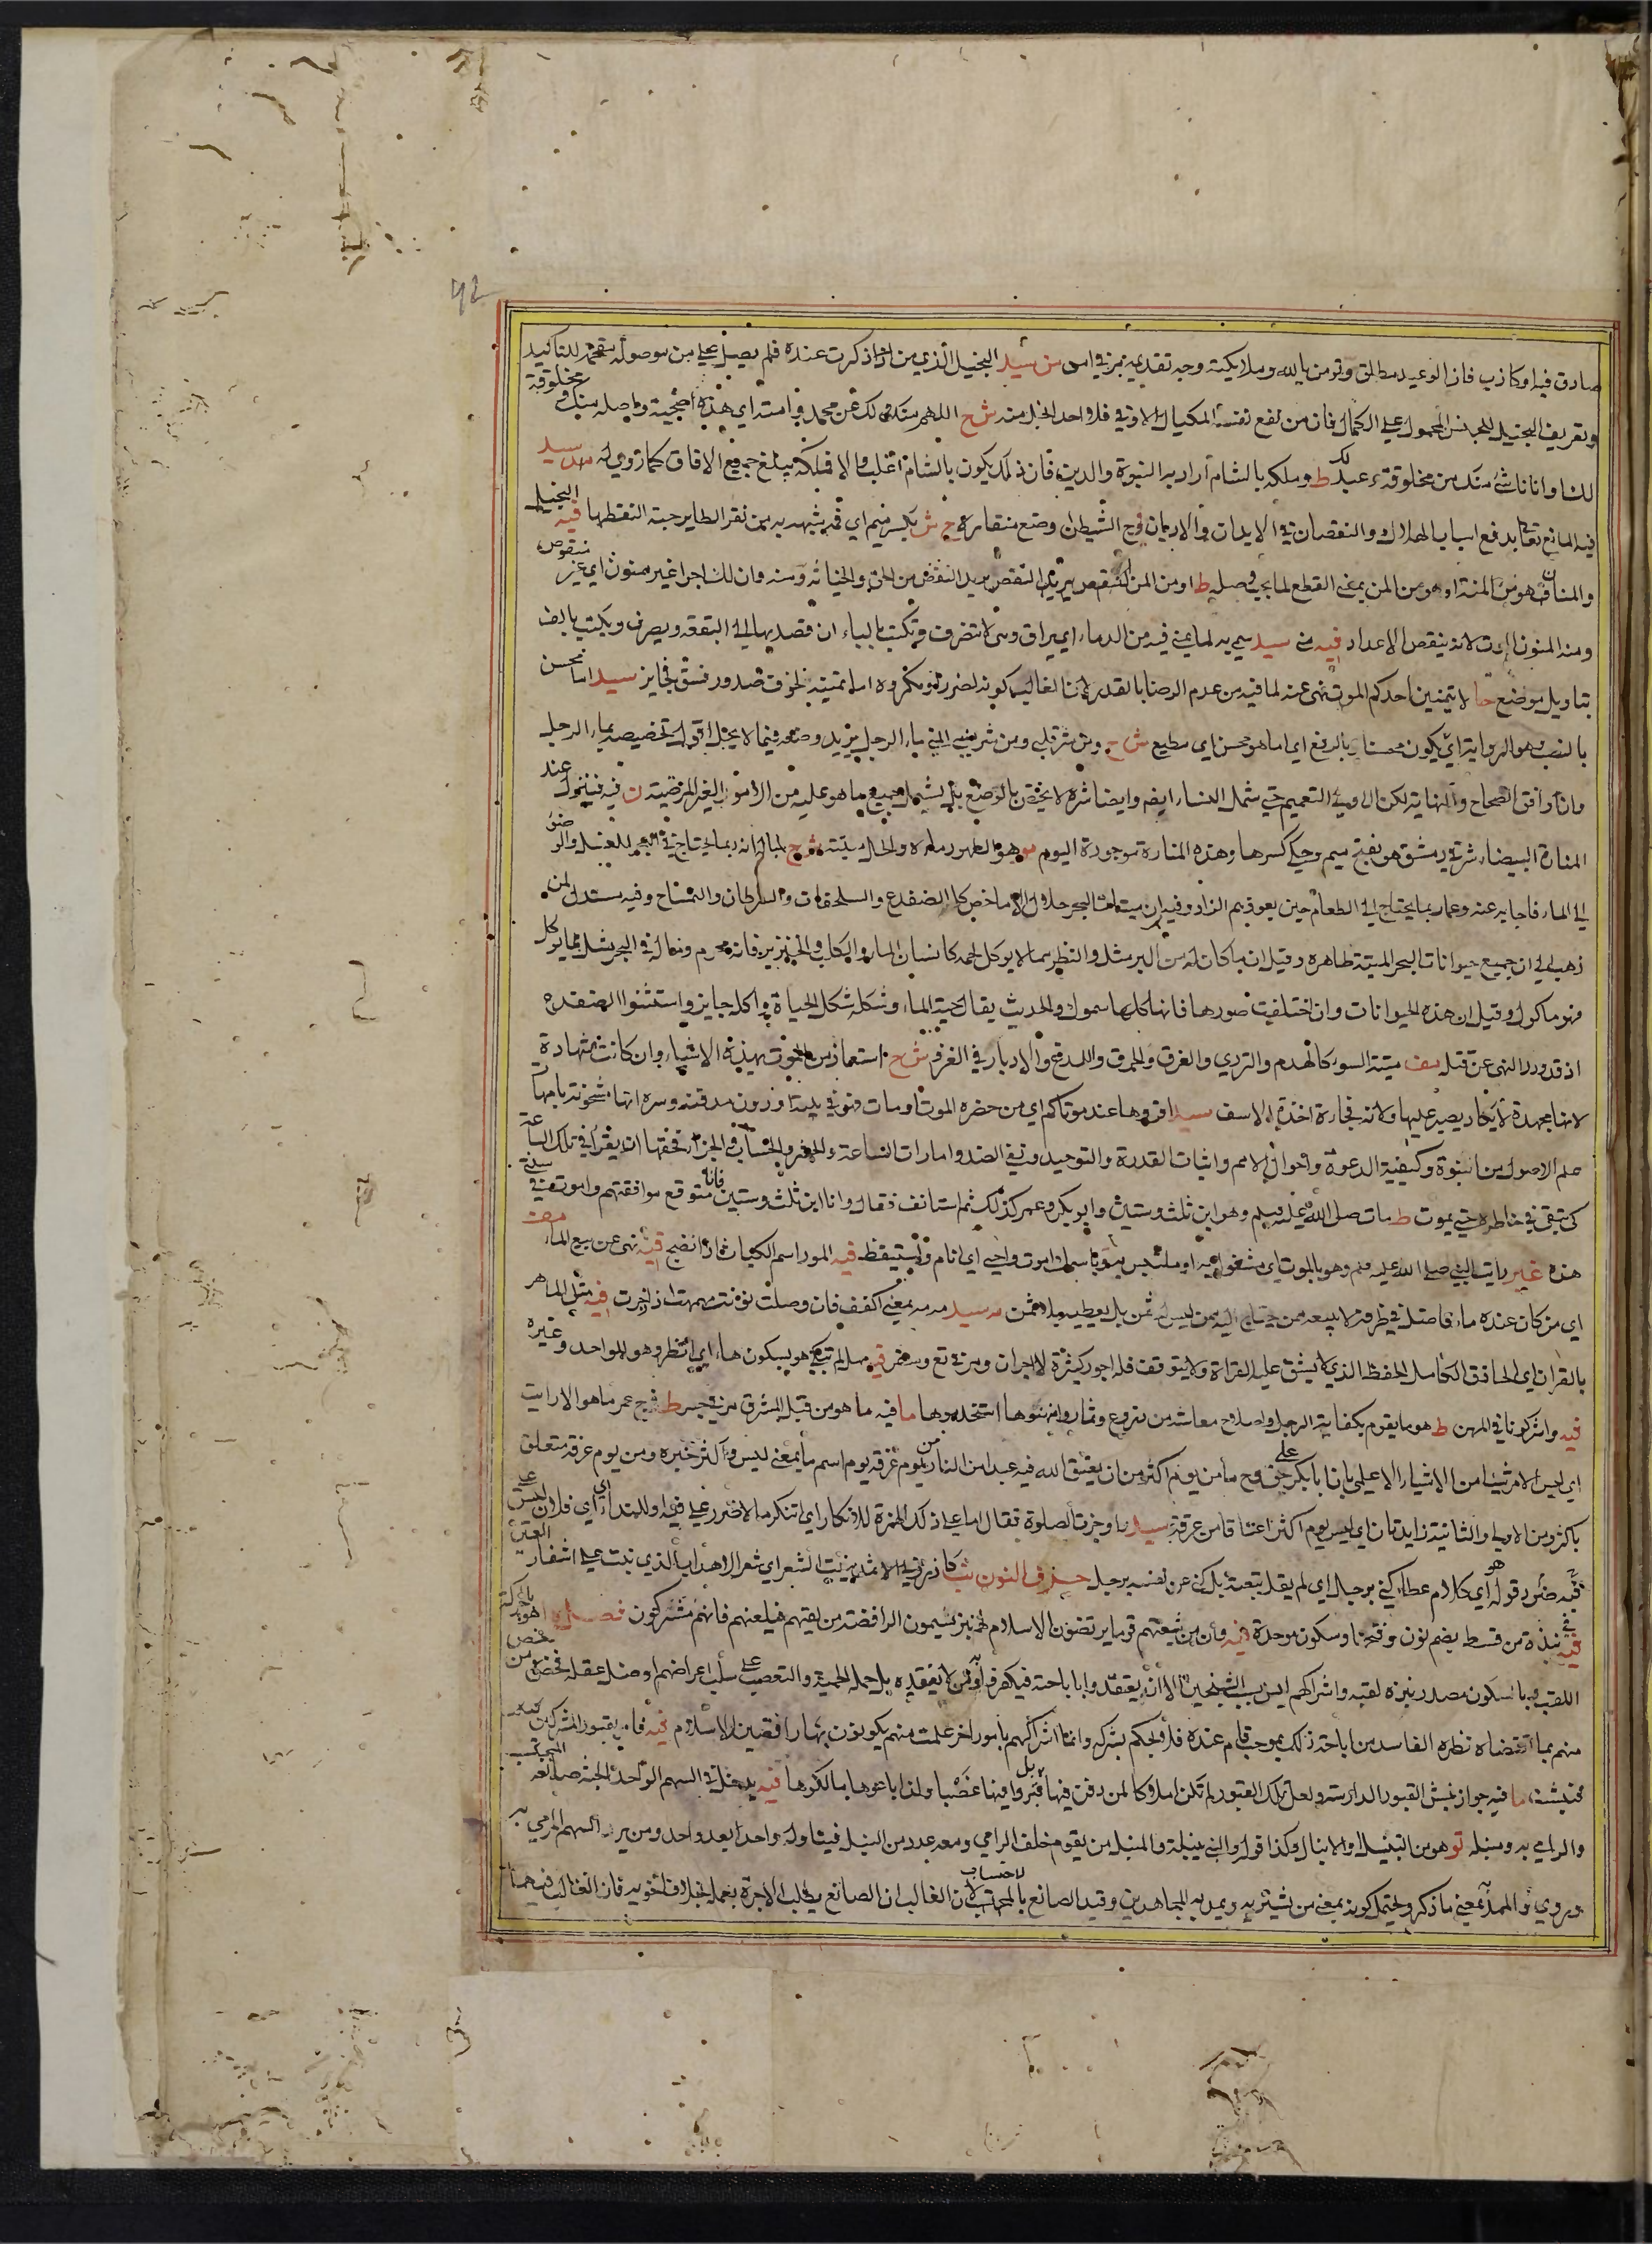 صادق فيه او كاذب فان الوعيد مطلق وتومن بالله وملايكته وجه تقديمه مر في امر من سيد البخيل الذي من اذا ذكرت عنده فلم يصل علي من موصولة مقحم للتاكيد
وتعريف البخيل للجنس المحمول على الكمال فان من لفع نفسه المكيال الاوفى فلا واحد ابخل منه ش ح اللهم منك ولك عن محمد وامته اي هذه اضحية واصله منك مخلوقة
لنا وانا ناشئ منك من مخلوقة عبدك لك ط وملكه بالشام اراد به النبوة والدين فان ذلك يكون بالشام اغلب والا فملكه يبلغ جميع الافاق كما زوي له سيد
فيه المانع تعالى يدفع اسباب الهلاك والنقصان في الابدان والاديان الشيطان وضع منقاره ج ش اي فيه يشبهه بمن نقر الطاير حبة التقطها فيه البخيل
والمنان هو من المنة او هو من المن بمعنى القطع لما يجب وصله ط او من المن النقص يريد النقص من الحق والخيانة ومنه وان لك اجرا غير ممنون اي غير منقوص
ومنه المنون الموت لانه ينقص الاعداد فيه منى سيد سمي به لما يمنى فيه من الدماء اي يراق ومنى لا تنصرف وتكتب بالياء ان قصد بها الى البقعة ويصرف ويكتب بالف
بتاويل موضع حا لا يتمنين احدكم الموت نهى عنه لما فيه من عدم الرضا بالقدر لان الغالب كونه لضرر مكروه اما تمنيه لخوف صدور فسق فجايز سيد اما محسن
بالنصب وهو الرواية اي يكون محسنا وبالرفع اي اما هو محسن اي مطيع ش ح ومن شر قلبي ومن شر منيي المني ماء الرجل يريد وضعه فيما لا يحل اقول تخصيصه بماء الرجل
وان وافق الصحاح والنهاية لكن الاولى التعميم حتى يشمل النساء ايضا وايضا شره لا يختص بالوضع بل يشمل جميع ما هو عليه من الامور الغير المرضية ن فيه فينزل عند
المنارة البيضاء شرقي دمشق هو بفتح ميم وحكي كسرها وهذه المنارة موجودة اليوم مو هو الطهور ماءه والحل ميتته ش ح لما انه ربما يحتاج في البحر للغسل والوضو
الى الماء فاجابه عنه وعما ربما يحتاج الى الطعام حين يعوذهم الزاد وفيه ان ميتات البحر حلال الا ما خص كالضفدع والسلحفات والسرطان والتمساح وفيه مستدل لمن
ذهب الى ان جميع حيوانات البحر الميتة طاهرة وقيل ان ما كان له من البر مثل والنظر مما لا يوكل لحمه كانسان الماء والكلب والخنزير فانه محرم وما له في البحر مثل مما يوكل
فهو ماكول وقيل ان هذه الحيوانات وان اختلفت صورها فانها كلها سموك والحديث يقال لحية الماء وشكله شكل الحياة واكله جايز واستثنوا الضفدع
اذ قد ورد النهي عن قتله مف ميتة السوء كالهدم والتردي والغرق والحرق واللدغ والادبار في الغزو ش ح استعاذ من الموت بهذه الاشياء وان كانت شهادة
لانها مجهدة لا يكاد يصبر عليها ولانه فجاءة اخذة الاسف سيد اقروها عند موتاكم اي من حضره الموت او مات فهو في بيته او دون مدفنه وسره انها مشحونة بامهات
علم الاصول من النبوة وكيفية الدعوة واحوال الامم واثبات القدرة والتوحيد ونفي الضد وامارات الساعة والحشر والحساب والجزاء فحقها ان يقرأ في تلك الساعة
كي تبقى في خاطره حتى يموت ط مات صلى الله عليه وسلم وهو ابن ثلث وستين وابو بكر وعمر كذلك ثم استانف فقال وانا ابن ثلث وستين فانا متوقع موافقتهم واموت في سنتي
هذه غير رايت النبي صلى الله عليه وسلم وهو بالموت اي مشغول به او ملتبس به باسمك اموت واحيى اي انام واستيقظ فيه المور اسم الكباث اذا نضج فيه نهى عن بيع الماء مف
اي من كان عنده ماء فاضل في ظرفه لا يبيعه من يحتاج اليه من ليس له ثمن بل يعطيه بلا ثمن مه سيد مه مه بمعنى اكفف فان وصلت نونت مهمت اذا زجرت فيه مثل الماهر
بالقران اي الحاذق الكامل الحفظ الذي لا يشق عليه القراة ولا يتوقف فله اجور كثيرة لا اجران ومر في تع وسفر فيه مهلا لم تبكي هو بسكون هاء اي انظر وهو للواحد وغيره
فيه واشركونا في المهن ط هو ما يقوم بكفاية الرجل واصلاح معاشه من زروع وثمار وامتهنوها استخدموها ما فيه ما هو من قبل المشرق مر في جس ط ش ح عمر ما هو الا رايت
اي ليس الامر شيئا من الاشياء الا علمي بان ابا بكر على حق وح ما من يوم اكثر من ان يعتق الله فيه عبدا من النار من يوم عرفة يوم اسم ما بمعنى ليس واكثر خبره ومن يوم عرفة متعلق
باكثر ومن الاولى والثانية زايدتان اي ليس يوم اكثر اعتاقا من عرفة سيد وجزت الصلوة فقال اما علي ذلك الهمزة للانكار اي اتنكر ما لا ضرر علي فيه او للنداء اي اي فلان ليس علي
فيه ضرر قوله هو اي كلام عطاء كني برجل اي لم يقل تبعته بل كنى عن نفسه برجل حرف النون نب كا ذبر في الاثمد ينبت الشعر اي شعر الاهداب الذي نبت على اشفار العين
فيه نبذة من قسط بضم نون وفتحها وسكون موحدة فيه وان من شيعتهم قوما يرتضون الاسلام لهم نبز يسمون الرافضة من لقيهم فليلعنهم فانهم مشركون هو بالحركة
اللقب وبالسكون مصدر نبزه لقبه واشراكهم ليس بسب الشيخين الا ان يعتقدوا باباحته فيكفر لانه ومن لا يعتقده بل حمله الحمية والتعصب على سلب اعراضهم وضل عقله بمحض ومن
منهم بما اقتضاه نظره الفاسد من اباحة ذلك بموجب قام عنده فلا يحكم بشركه وانما اشراكهم بامور اخر علمت منهم يكونون بها رافضين للاسلام فيه فامر بقبور المشركين
فنبشت ما فيه جواز نبش القبور الدارسة ولعل تلك القبور لم تكن املاكا لمن دفن فيها بل قبروا فيها غصبا ولذا باعوها مالكوها فيه يدخل في السهم الواحد الجنة صانعه المحتسب
والرامي به ومنبله تو هو من التنبيل او الانبال وكذا قوله والنبي ينبلة والمنبل من يقوم خلف الرامي ومعه عدد من النبل فيناوله واحدا بعد واحد ومن يرد السهم المرمي به
وروي والممد بمعنى ما ذكر ويحتمل كونه بمعنى من يشتريه ويمد به المجاهدين وقيد الصانع بالمحتسب لاحتساب لان الغالب ان الصانع يطلب الاجرة بعمله بخلاف اخويه فان الغالب فيهما